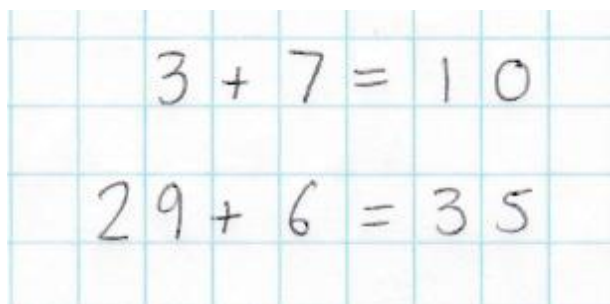 3 + 7 = 10
29 + 6 = 35